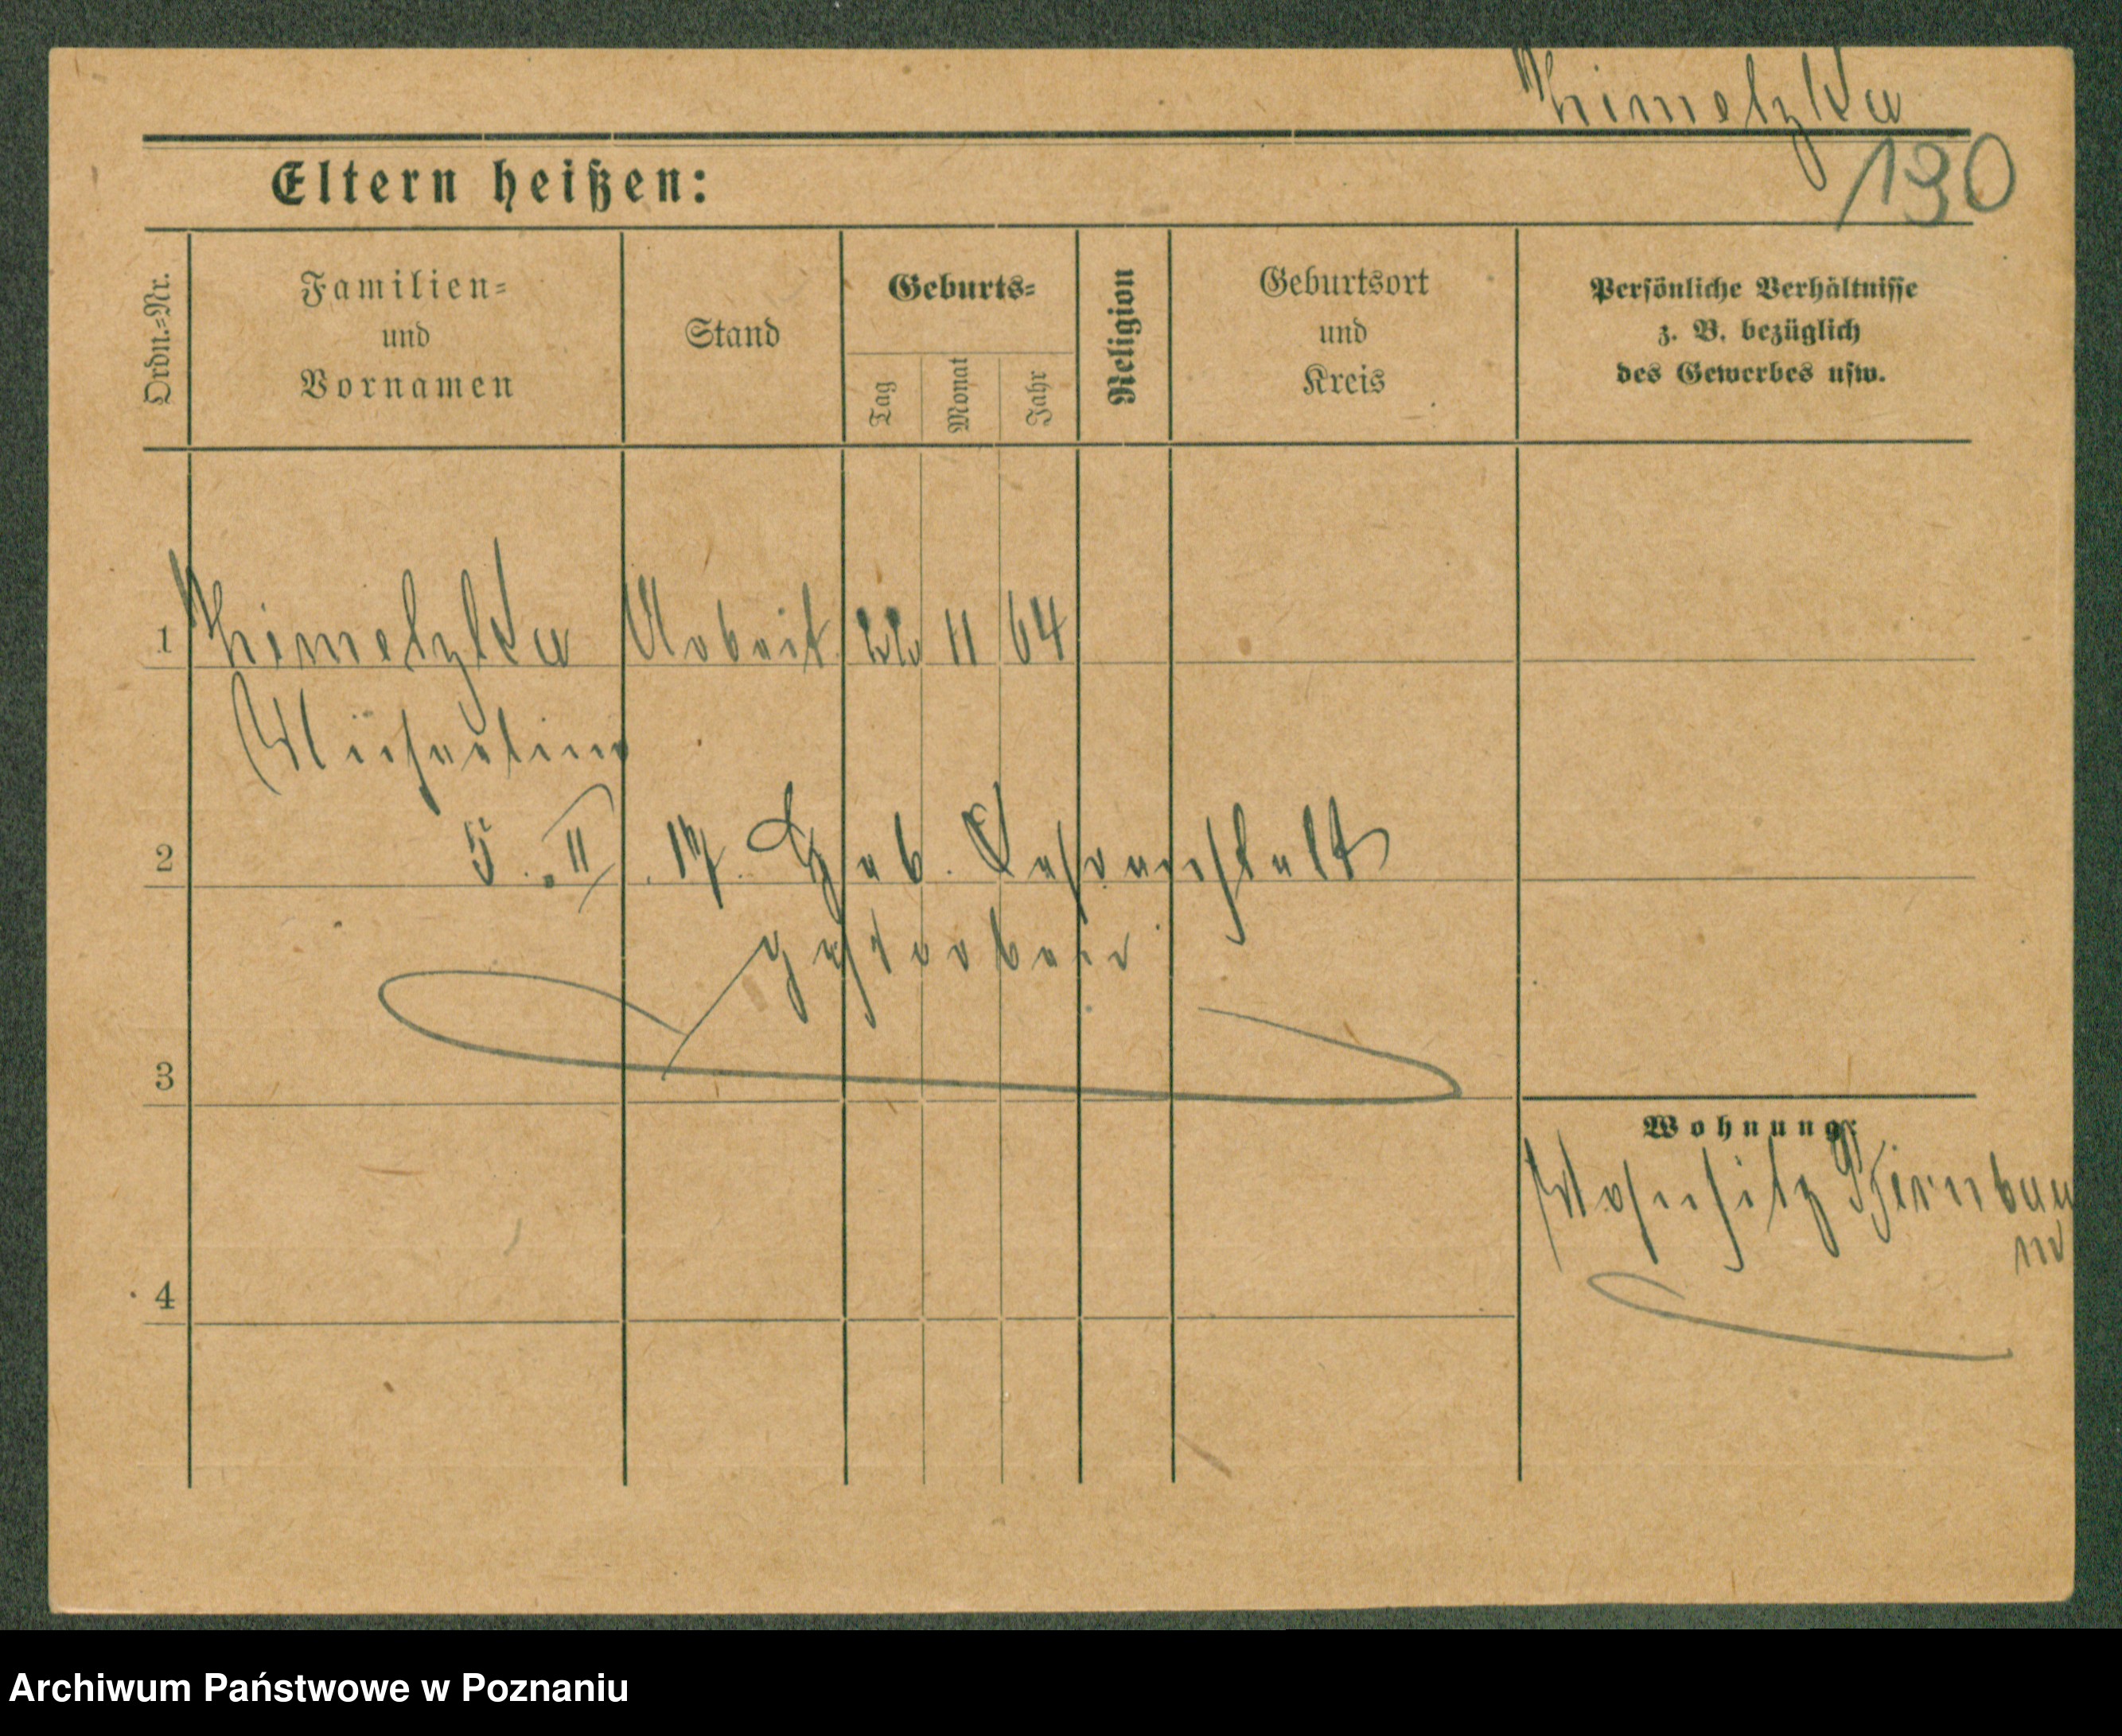 Chimelzka
190
Eltern heißen:
Ordn.=Nr.
Familien=
und
Vornamen
Stand
Geburts=
Tag
Monat
Jahr
Religion
Geburtsort
und
Kreis
Persönliche Verhältnisse
z. B. bezüglich
des Gewerbes usw.
1 Arbeit. 22 11 64
2 5. II. 17. Geb. Lehranstalt
gestorben
3
Wohnung:
Wohnsitz Birnbau
m
4
Archiwum Państwowe w Poznaniu